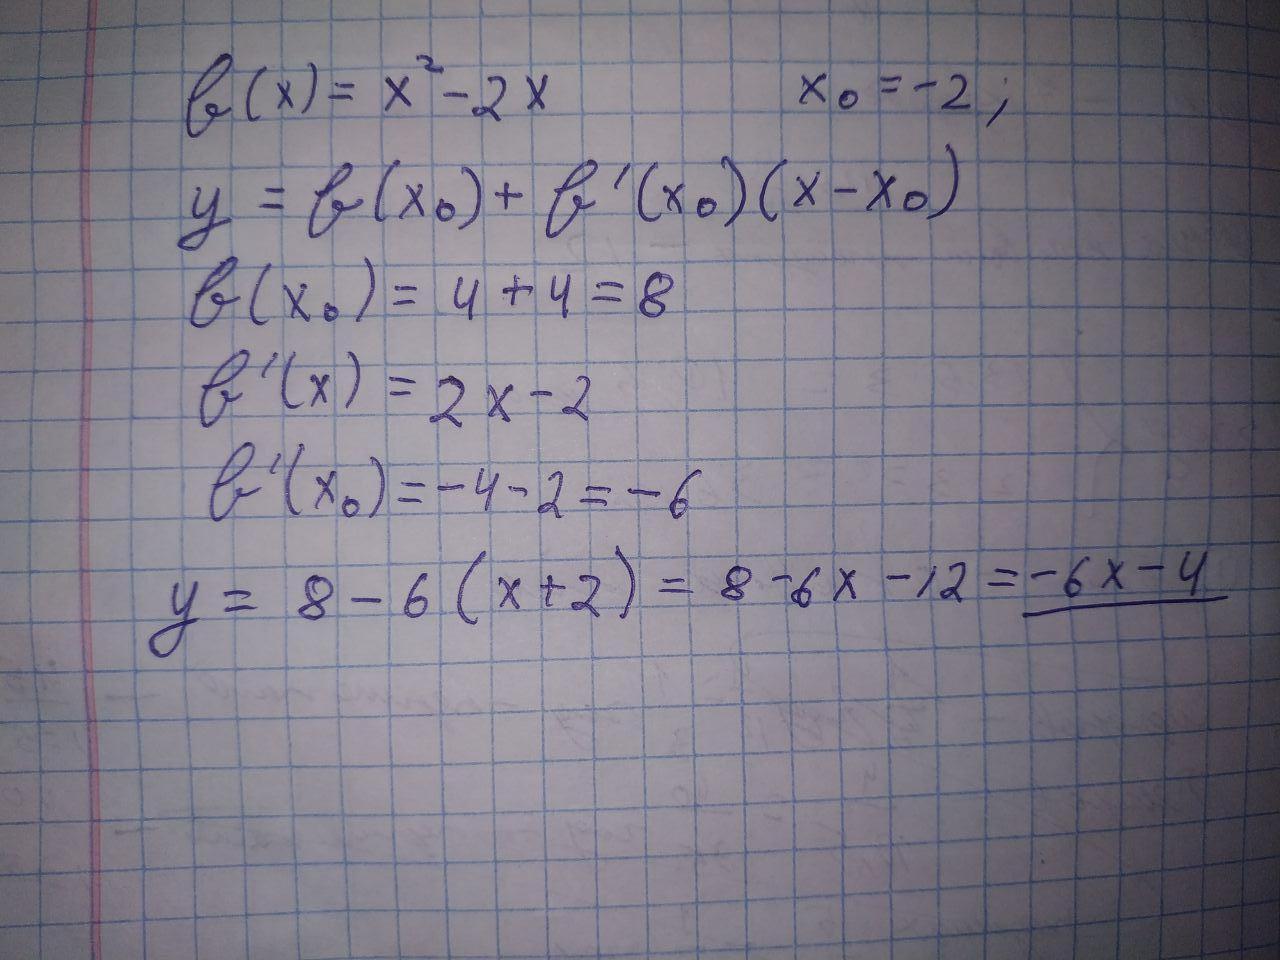 f(x) = x² - 2x x₀ = -2;
y = f(x₀) + f'(x₀)(x - x₀)
f(x₀) = 4 + 4 = 8
f'(x) = 2x - 2
f'(x₀) = -4 - 2 = -6
y = 8 - 6(x+2) = 8 - 6x - 12 = -6x - 4